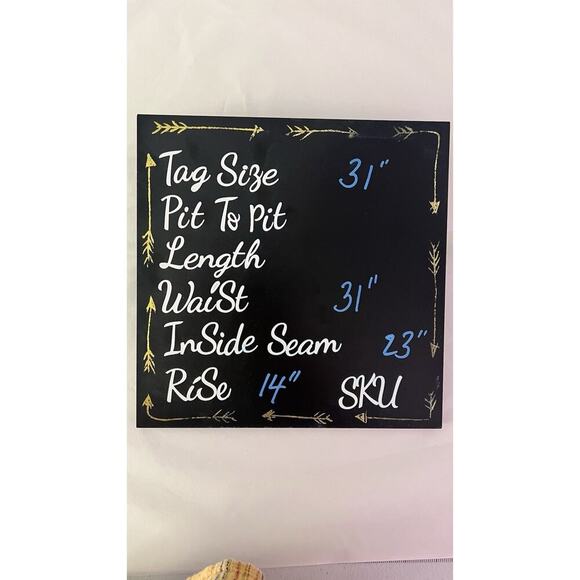 Tag Size 31"
Pit To Pit
Length
Waist 31"
InSide Seam 23"
RiSe 14" SKU